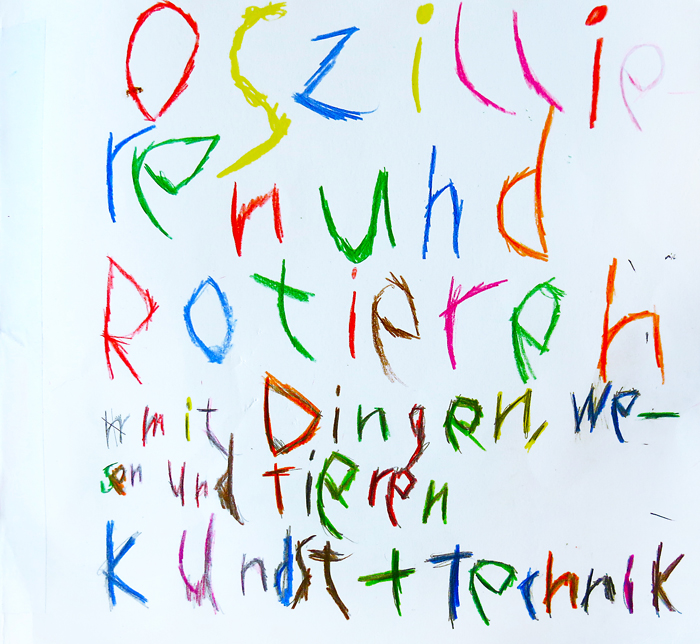 Oszillie-
ren und
Rotieren
mit Dingen, We-
sen und Tieren
Kundst + Technik